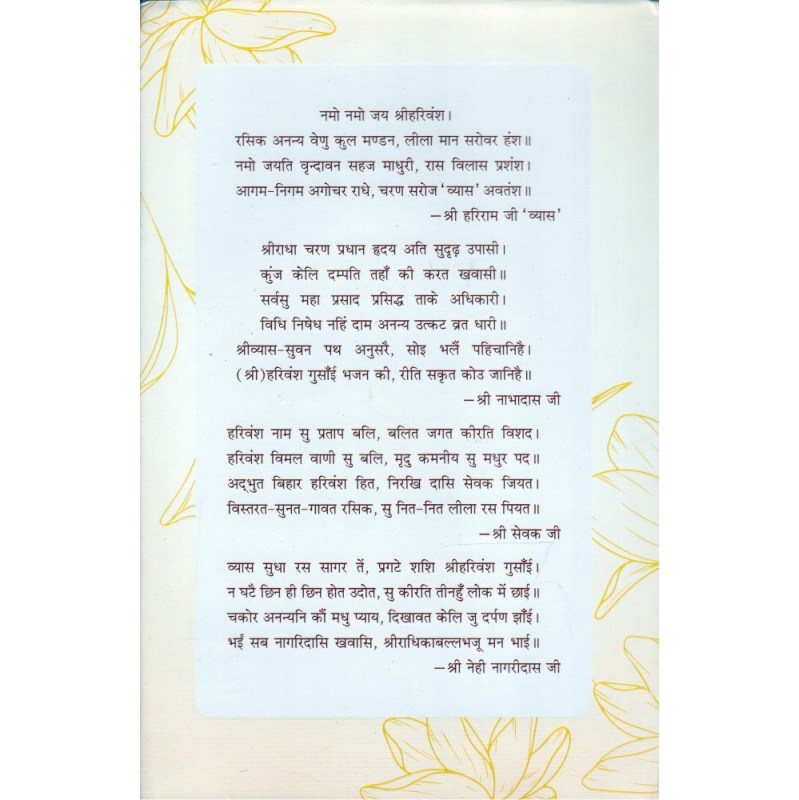 नमो नमो जय श्रीहरिवंश।
रसिक अनन्य वेणु कुल मण्डन, लीला मान सरोवर हंश॥
नमो जयति वृन्दावन सहज माधुरी, रास विलास प्रशंश।
आगम-निगम अगोचर राधे, चरण सरोज ‘व्यास’ अवतंश॥
–श्री हरिराम जी ‘व्यास’
श्रीराधा चरण प्रधान हृदय अति सुदृढ़ उपासी।
कुंज केलि दम्पति तहाँ की करत खवासी॥
सर्वसु महा प्रसाद प्रसिद्ध ताके अधिकारी।
विधि निषेध नहिं दाम अनन्य उत्कट व्रत धारी॥
श्रीव्यास-सुवन पथ अनुसरै, सोइ भलैं पहिचानिहै।
(श्री)हरिवंश गुसाँई भजन की, रीति सकृत कोउ जानिहै॥
–श्री नाभादास जी
हरिवंश नाम सु प्रताप बलि, बलित जगत कीरति विशद।
हरिवंश विमल वाणी सु बलि, मृदु कमनीय सु मधुर पद॥
अद्‌भुत बिहार हरिवंश हित, निरखि दासि सेवक जियत।
विस्तरत-सुनत-गावत रसिक, सु नित-नित लीला रस पियत॥
–श्री सेवक जी
व्यास सुधा रस सागर तें, प्रगटे शशि श्रीहरिवंश गुसाँई।
न घटै छिन ही छिन होत उदोत, सु कीरति तीनहुँ लोक में छाई॥
चकोर अनन्यनि कौं मधु प्याय, दिखावत केलि जु दर्पण झाँई।
भईं सब नागरिदासि खवासि, श्रीराधिकाबल्लभजू मन भाई॥
–श्री नेही नागरीदास जी